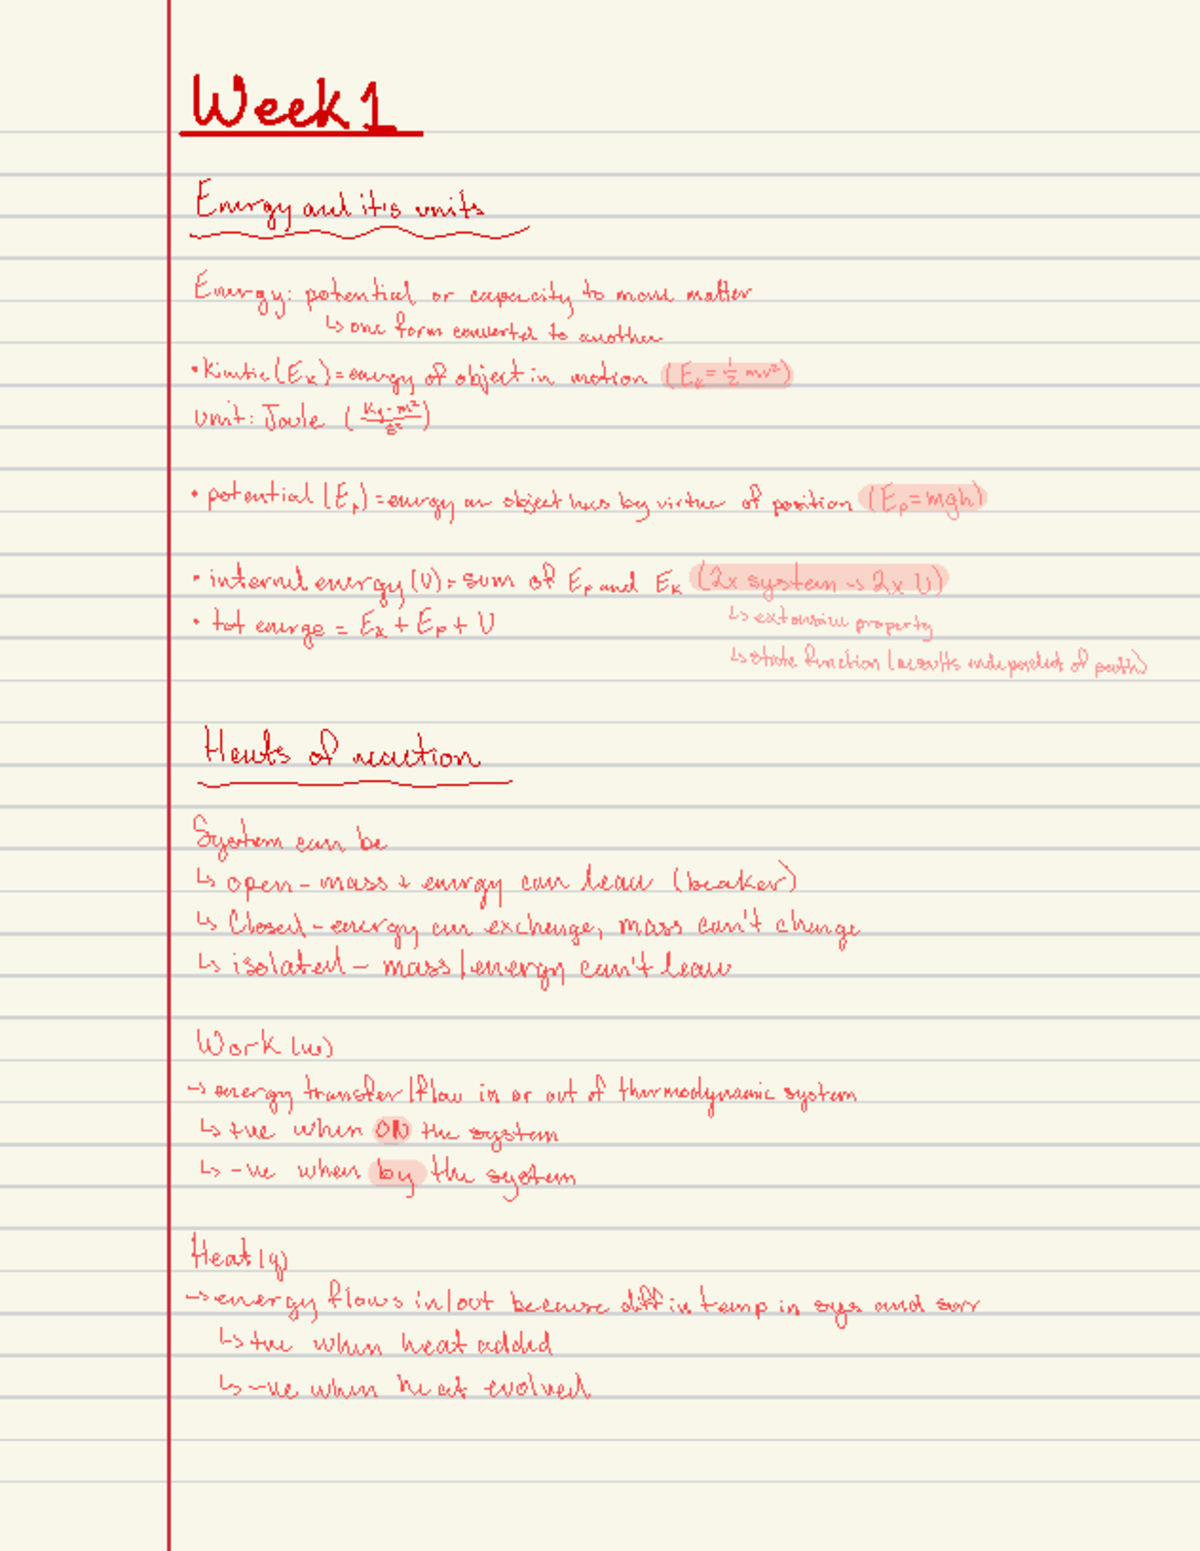 Week 1
Energy and it's units
Energy: potential or capacity to move matter
↳ one form converted to another
• Kinetic (Eₖ) = energy of object in motion (Eₖ = ½ mv²)
unit: Joule (kg·m²/s²)
• potential (Eₚ) = energy an object has by virtue of position (Eₚ = mgh)
• internal energy (U) = sum of Eₚ and Eₖ (2x system → 2x U)
• tot energe = Eₖ + Eₚ + U
↳ extensive property
↳ state function (results independent of path)
Heats of reaction
System can be
↳ open - mass + energy can leave (beaker)
↳ Closed - energy can exchange, mass can't change
↳ isolated - mass/energy can't leave
Work (w)
→ energy transfer/flow in or out of thermodynamic system
↳ +ve when ON the system
↳ -ve when by the system
Heat (q)
→ energy flows in/out because diff in temp in sys and surr
↳ +ve when heat added
↳ -ve when heat evolved